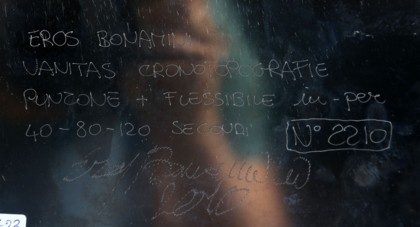 EROS BONAMINI
VANITAS CRONOTOPOGRAFIE
PUNZONE + FLESSIBILE in-per
40-80-120 SECONDI N° 2210